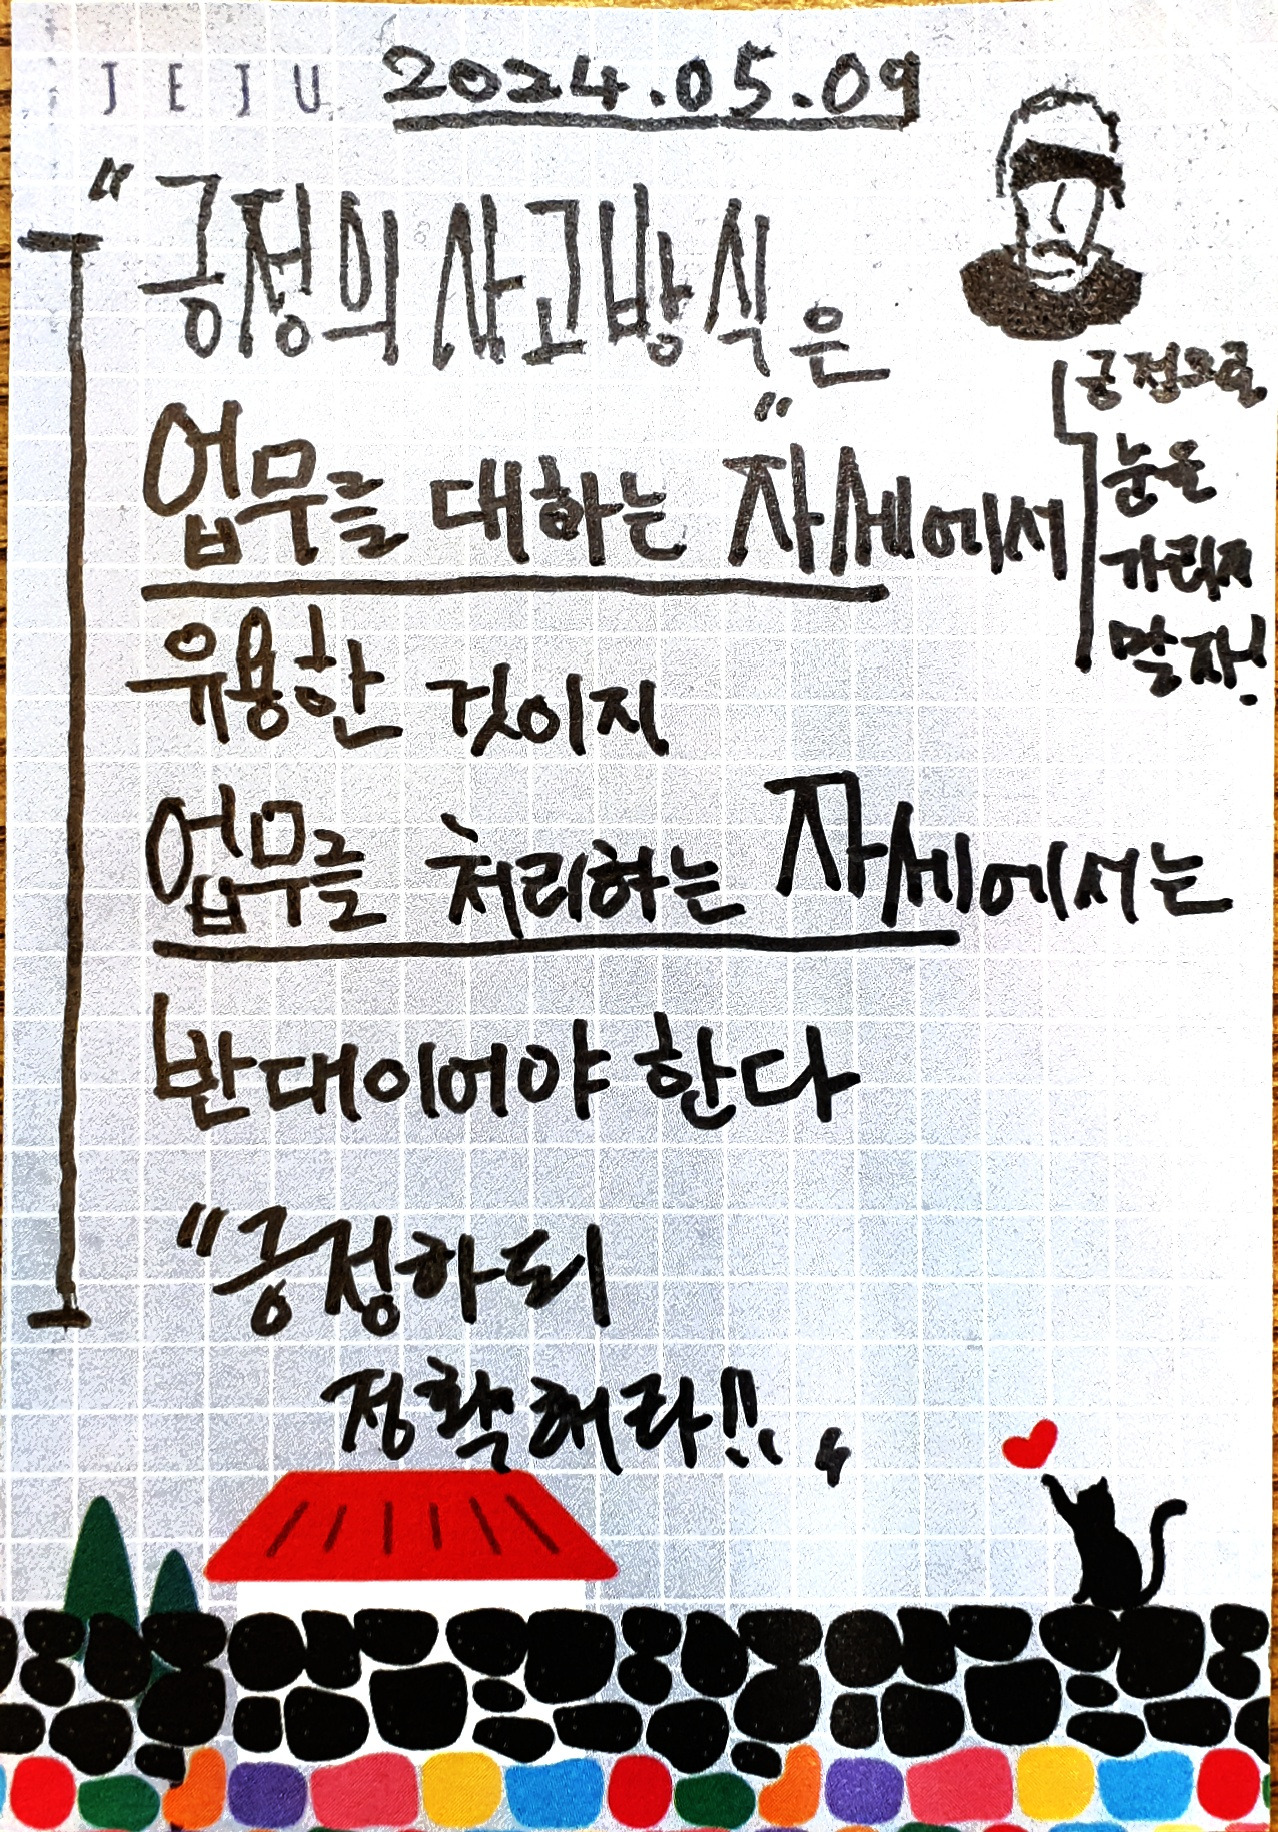 JEJU 2024.05.09
"긍정의 사고방식"은
업무를 대하는 자세에서
유용한 것이지
업무를 처리하는 자세에서는
반대이어야 한다
"긍정하되
정확해라!!"
긍정으로
눈을
가리지
말자!